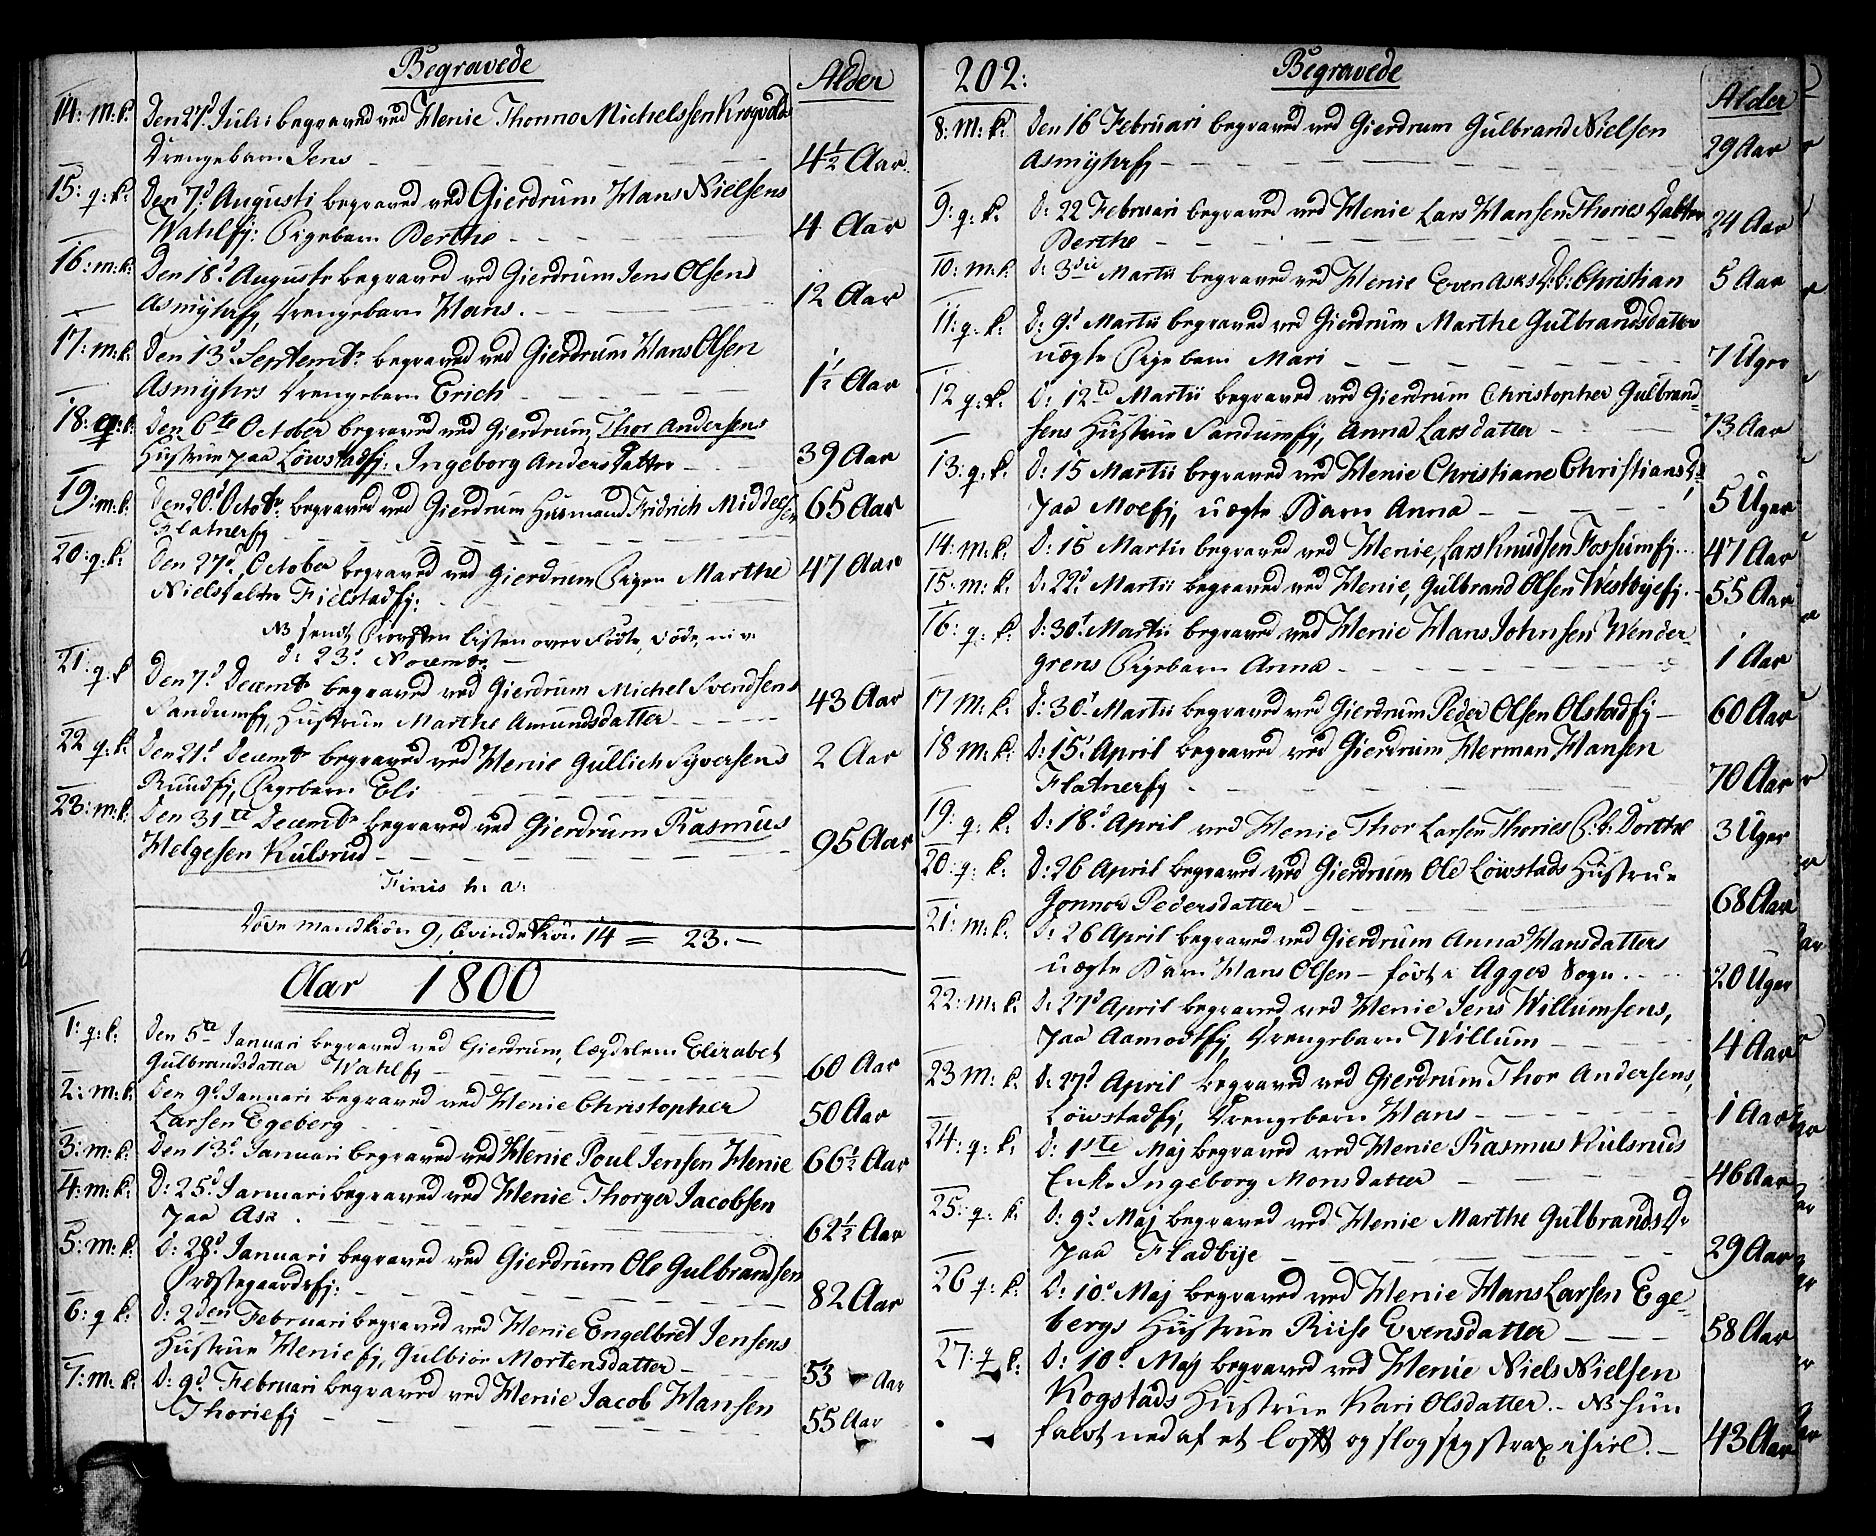 Begravede
Alder
14: m: k: Den 21d Julii begraved ved Henie Thonno Michelssen Krogvolds
Drengebarn Jens 4½ Aar
15: q: k: Den 7d Augusti begraved ved Gierdrum Hans Nielsens
Wahlfj: Pigebarn Berthe 4 Aar
16: m: k: Den 18d Auguste begraved ved Gierdrum Jens Olsens
Asmyhrfj, Drengebarn Hans. 12 Aar
17: m: k: Den 13d Septembr begraved ved Gierdrum Hans Olsen
Asmyhrs Drengebarn Erich 1½ Aar
18: q: k: Den 6te October begraved ved Gierdrum Thor Andersens
Hustrue paa Löwstadfj: Ingeborg Andersdatter 39 Aar
19: m: k: Den 20d Octobr: begraved ved Gierdrum Husmand Fridrich Middelsen
Flatnerfj 65 Aar
20: q: k: Den 27d October begraved ved Gierdrum Pigen Marthe
Nielsdatter Fielstadfj: 47 Aar
NB sendt Provsten Listen over Födte, Döde,
d: 23d Novembr
21: q: k Den 7d Decembr begraved ved Gierdrum Michel Svendsens
Sandumfj, Hustrue Marthe Amundsdatter 43 Aar
22 q: k: Den 21d Decembr begraved ved Henie Gullich Syversens
Ruudfj, Pigebarn Eli 2 Aar
23: m: k: Den 31te Decembr begraved ved Gierdrum Rasmus
Helgesen Kulsrud 95 Aar
Finis h: a:
Döde Mandkiön 9, Qvindekiön 14 = 23.
Aar 1800
1: q: k: Den 5te Januari begraved ved Gierdrum, Lægdslem Elizabet
Gulbrandsdatter Wahlfj 60 Aar
2: m: k: Den 9d Januari begraved ved Henie Christopher
Larsen Egeberg 50 Aar
3: m: k: Den 13d Januari begraved ved Henie Poul Jensen Henie 66½ Aar
4: m: k: D: 25d Januari begraved ved Henie Thorger Jacobsen
paa Ask 62½ Aar
5: m: k: D: 28d Januari begraved ved Gierdrum Ole Gulbrandsen
Præstegaardsfj: 82 Aar
6: q k: D: 2den Februari begraved ved Henie Engelbret Jensens
Hustrue Heniefj, Gulbiör Mortensdatter 53 Aar
7: m: k: D: 9d Februari begraved ved Henie Jacob Hansen
Thoriefj 55 Aar
202:
Begravede
Alder
8: m: k: Den 16 Februari begraved ved Gierdrum Gulbrand Nielsen
Asmyhrfj 29 Aar
9: q: k: D: 22 Februari begraved ved Henie Lars Hansen Thories Datter
Berthe 24 Aar
10: m: k D: 3die Martii begraved ved Henie Even Asks D: b: Christian 5 Aar
11: q: k: D: 9d Martii begraved ved Gierdrum Marthe Gulbrandsdatters
uægte Pigebarn Mari 7 Uger
12 q: k: D: 12te Martii begraved ved Gierdrum Christopher Gulbrand-
sens Hustrue Sandumfj, Anna Larsdatter 73 Aar
13: q: k: D: 15 Martii begraved ved Henie Christiane Christiansd:
paa Moefj, uægte Barn Anna 5 Uger
14: m: k: D: 15 Martii begraved ved Henie, Lars Knudsen Fossumfj 47 Aar
15: m: k: D: 22d Martii begraved ved Henie, Gulbrand Olsen Westbyefj. 55 Aar
16: q: k: D: 30t Martii begraved ved Henie Hans Johnsen Wender-
grens Pigebarn Anna 1 Aar
17 m: k: D: 30t Martii begraved ved Gierdrum Peder Olsen Olstadfj 60 Aar
18 m: k: D: 15t April begraved ved Gierdrum Herman Hansen
Flatnerfj 70 Aar
19: q: k: D: 18d April ved Henie Thor Larsen Thories P: b: Dorthe 3 Uger
20: q: k: D: 26 April begraved ved Gierdrum Ole Löwstads Hustrue
Gonnor Pedersdatter 68 Aar
21: m: k: D: 26 April begraved ved Gierdrum Anna Hansdatters
uægte Barn Hans Olsen - födt i Agger Sogn. 20 Uger
22: m: k: D: 27d April begraved ved Henie Jens Willumsens,
paa Aamodtfj, Drengebarn Willum 4 Aar
23 m: k: D: 27d April begraved ved Gierdrum Thor Andersens,
Löwstadfj, Drengebarn Hans 1 Aar
24: q: k: D: 1ste Maj begraved ved Henie Rasmus Kulsruds
Enke Ingeborg Monsdatter 46 Aar
25: q: k: D: 9d Maj begraved ved Henie Marthe Gulbrandsdr
paa Fladbye 29 Aar
26 q: k: D: 10d Maj begraved ved Henie Hans Larsen Ege-
bergs Hustrue Riise Evensdatter 58 Aar
27: q k: D: 10d Maj begraved ved Henie Niels Nielsen
Kogstads Hustrue Kari Olsdatter. - NB hun
faldt ned af et Loft og slog sig strax ihiel. 43 Aar